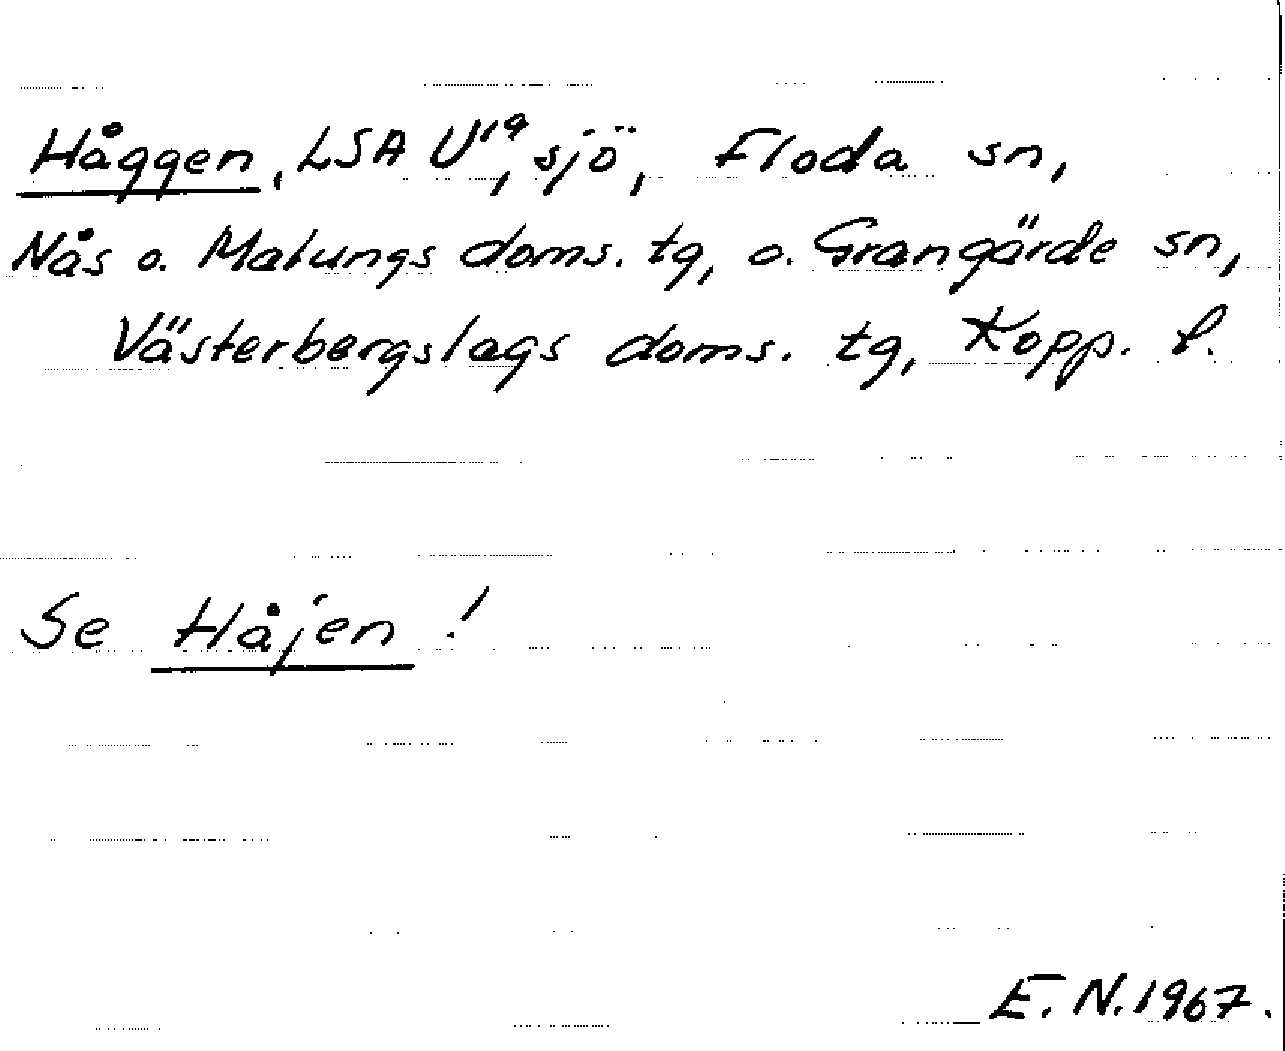 Håggen, LSA U19, sjö, Floda sn,
Nås o. Malungs doms. tg, o. Grangärde sn,
Västerbergslags doms. tg, Kopp. l.
Se Håjen!
E. N. 1967.